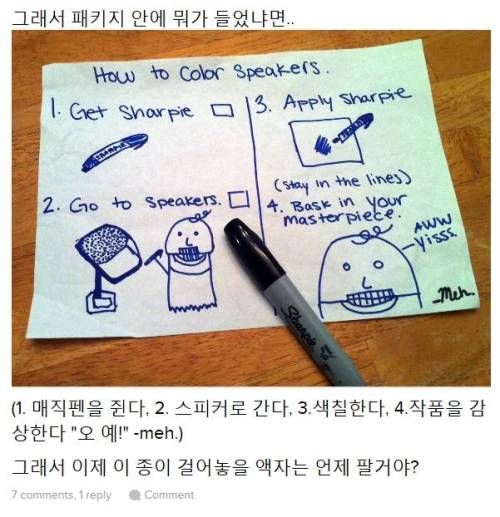 그래서 패키지 안에 뭐가 들었냐면..
How to Color Speakers.
1. Get Sharpie
SHARPIE
2. Go to Speakers.
3. Apply Sharpie
(stay in the lines)
4. Bask in your
masterpiece.
AWW
Yisss.
-Meh.
Sharpie
(1. 매직펜을 쥔다, 2. 스피커로 간다, 3.색칠한다, 4.작품을 감
상한다 "오 예!" -meh.)
그래서 이제 이 종이 걸어놓을 액자는 언제 팔거야?
7 comments, 1 reply
Comment